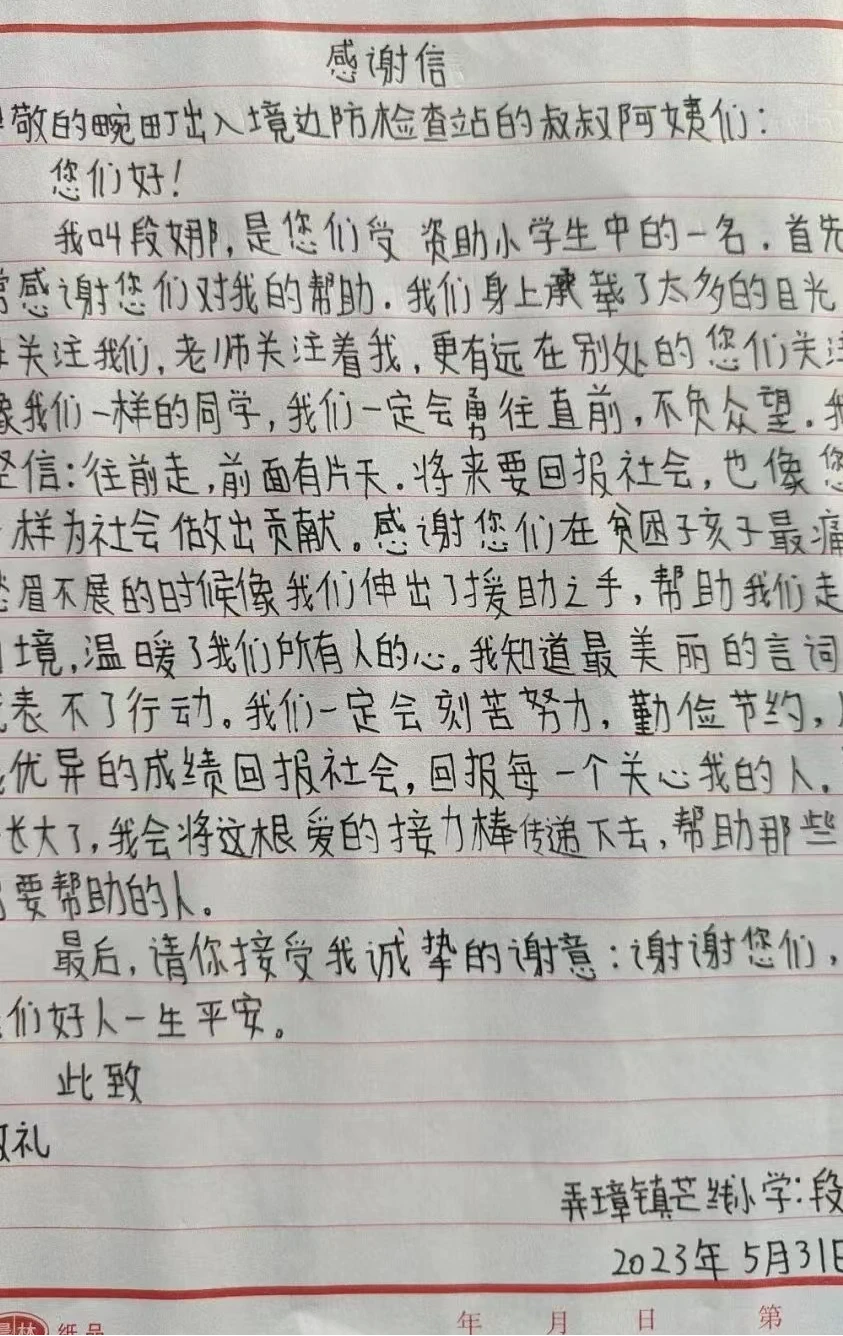 感谢信
敬的畹町出入境边防检查站的叔叔阿姨们：
您们好！
我叫段娜，是您们受资助小学生中的一名．首先
感谢您们对我的帮助．我们身上承载了太多的目光
关注我们，老师关注着我，更有远在别处的您们关注
像我们一样的同学，我们一定会勇往直前，不负众望．我
坚信：往前走，前面有片天．将来要回报社会，也像您
样为社会做出贡献。感谢您们在贫困子孩子最痛
愁眉不展的时候像我们伸出了援助之手，帮助我们走
境，温暖了我们所有人的心。我知道最美丽的言词
表不了行动。我们一定会刻苦努力，勤俭节约，
优异的成绩回报社会，回报每一个关心我的人．
长大了，我会将这根爱的接力棒传递下去，帮助那些
要帮助的人。
最后，请你接受我诚挚的谢意：谢谢您们，
们好人一生平安。
此致
敬礼
弄璋镇芒线小学：段
2023年5月31日
林 纸品 年 月 日 第